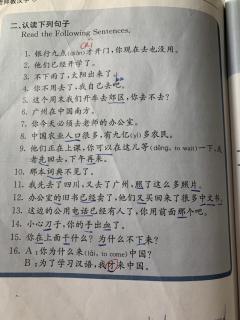 二、认读下列句子
Read the Following Sentences.
1. 银行九点(diǎn)才开门，你现在去也没用。
2. 他们已经开学了。
3. 不下雨了，太阳出来了。
4. 你不用去了，我自己去吧。
5. 这个周末我们开车去郊区，你去不去？
6. 广州在中国南方。
7. 你今天必须去老师的办公室。
8. 中国农业人口很多，有九亿(yì)多农民。
9. 他们正在上课，你可以在这儿等(děng, to wait)一下，或
者先回去，下午再来。
10. 那本词典不见了。
11. 我先去了四川，又去了广州，照了这么多照片。
12. 办公室的旧书已经卖了，他们又买回来了很多中文书。
13. 这边的公用电话已经有人了，你用前面那个吧。
14. 小心刀子，你的手出血了。
15. 你在上面干什么？为什么不下来？
16. A：你为什么来(lái, to come)中国？
B：为了学习汉语，我才来中国。